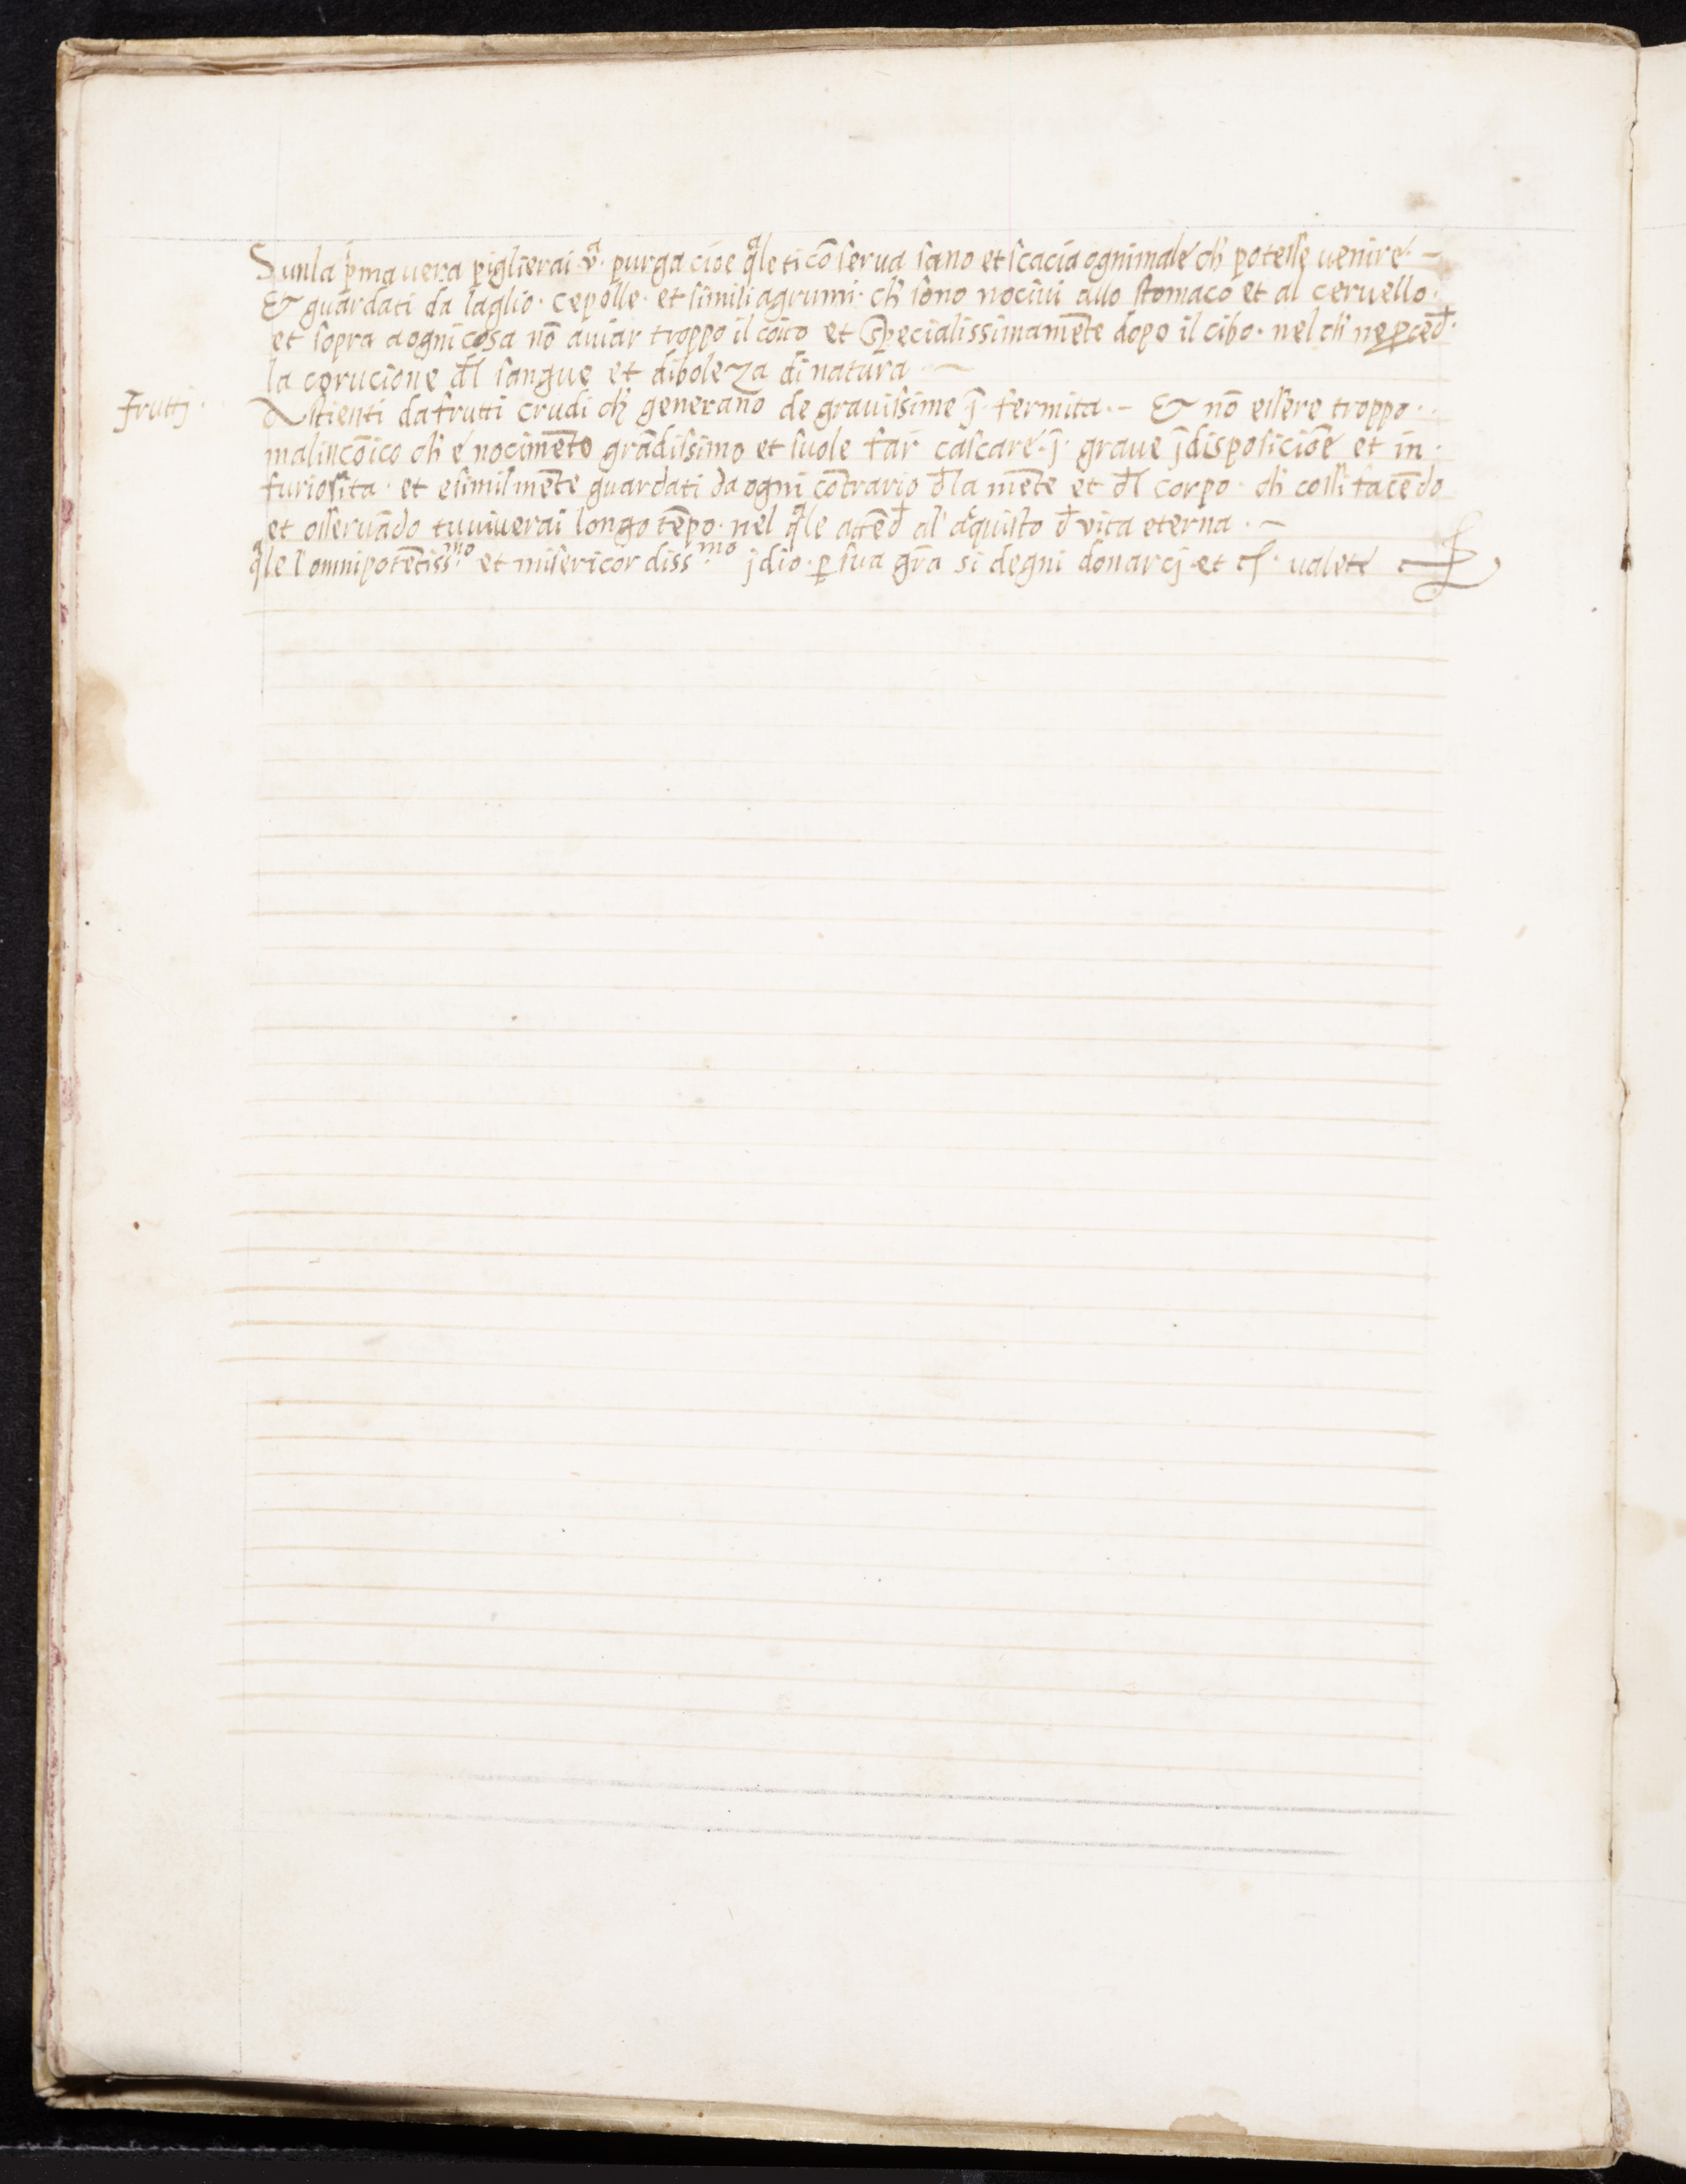 Sunla p̄ma uera piglierai .v̊ᵃ. purga cioe q̊ᵃle ti cōserua sano et scacia ognimale ch̄ potesse uenire· –
& guardati da laglio· cepolle· et simili agrumi· ch̄ sono nociui allo stomaco et al ceruello·
et sopra a ogni cosa nō auiar troppo il coito et specialissimamēte dopo il cibo· nel ch̄ ne ꝓced̄·
la corucione d̄l sangue et diboleza di natura · –
Frutti· 
Astienti da frutti crudi ch̄ generano de grauissime j̄· fermita· – & nō essere troppo·
malincōico ch̄ é nocimēto grādissimo et suole far cascare· j̄· graue j̄disposiciōe et in·
furiosita· et esimilmēte guardati da ogni cōtrario d̄la mēte et d̄l corpo· ch̄ cossi facēdo
et osseruādo tu uiuerai longo tēpo· nel qᵃle attēd̄ al' aquisto d̄ vita eterna · –
qᵃle l'omnipotētiss.ᵐᵒ et misericordiss.ᵐᵒ jdio· ꝑ sua gr̄a si degni donarcj· et cꝭ· ualete